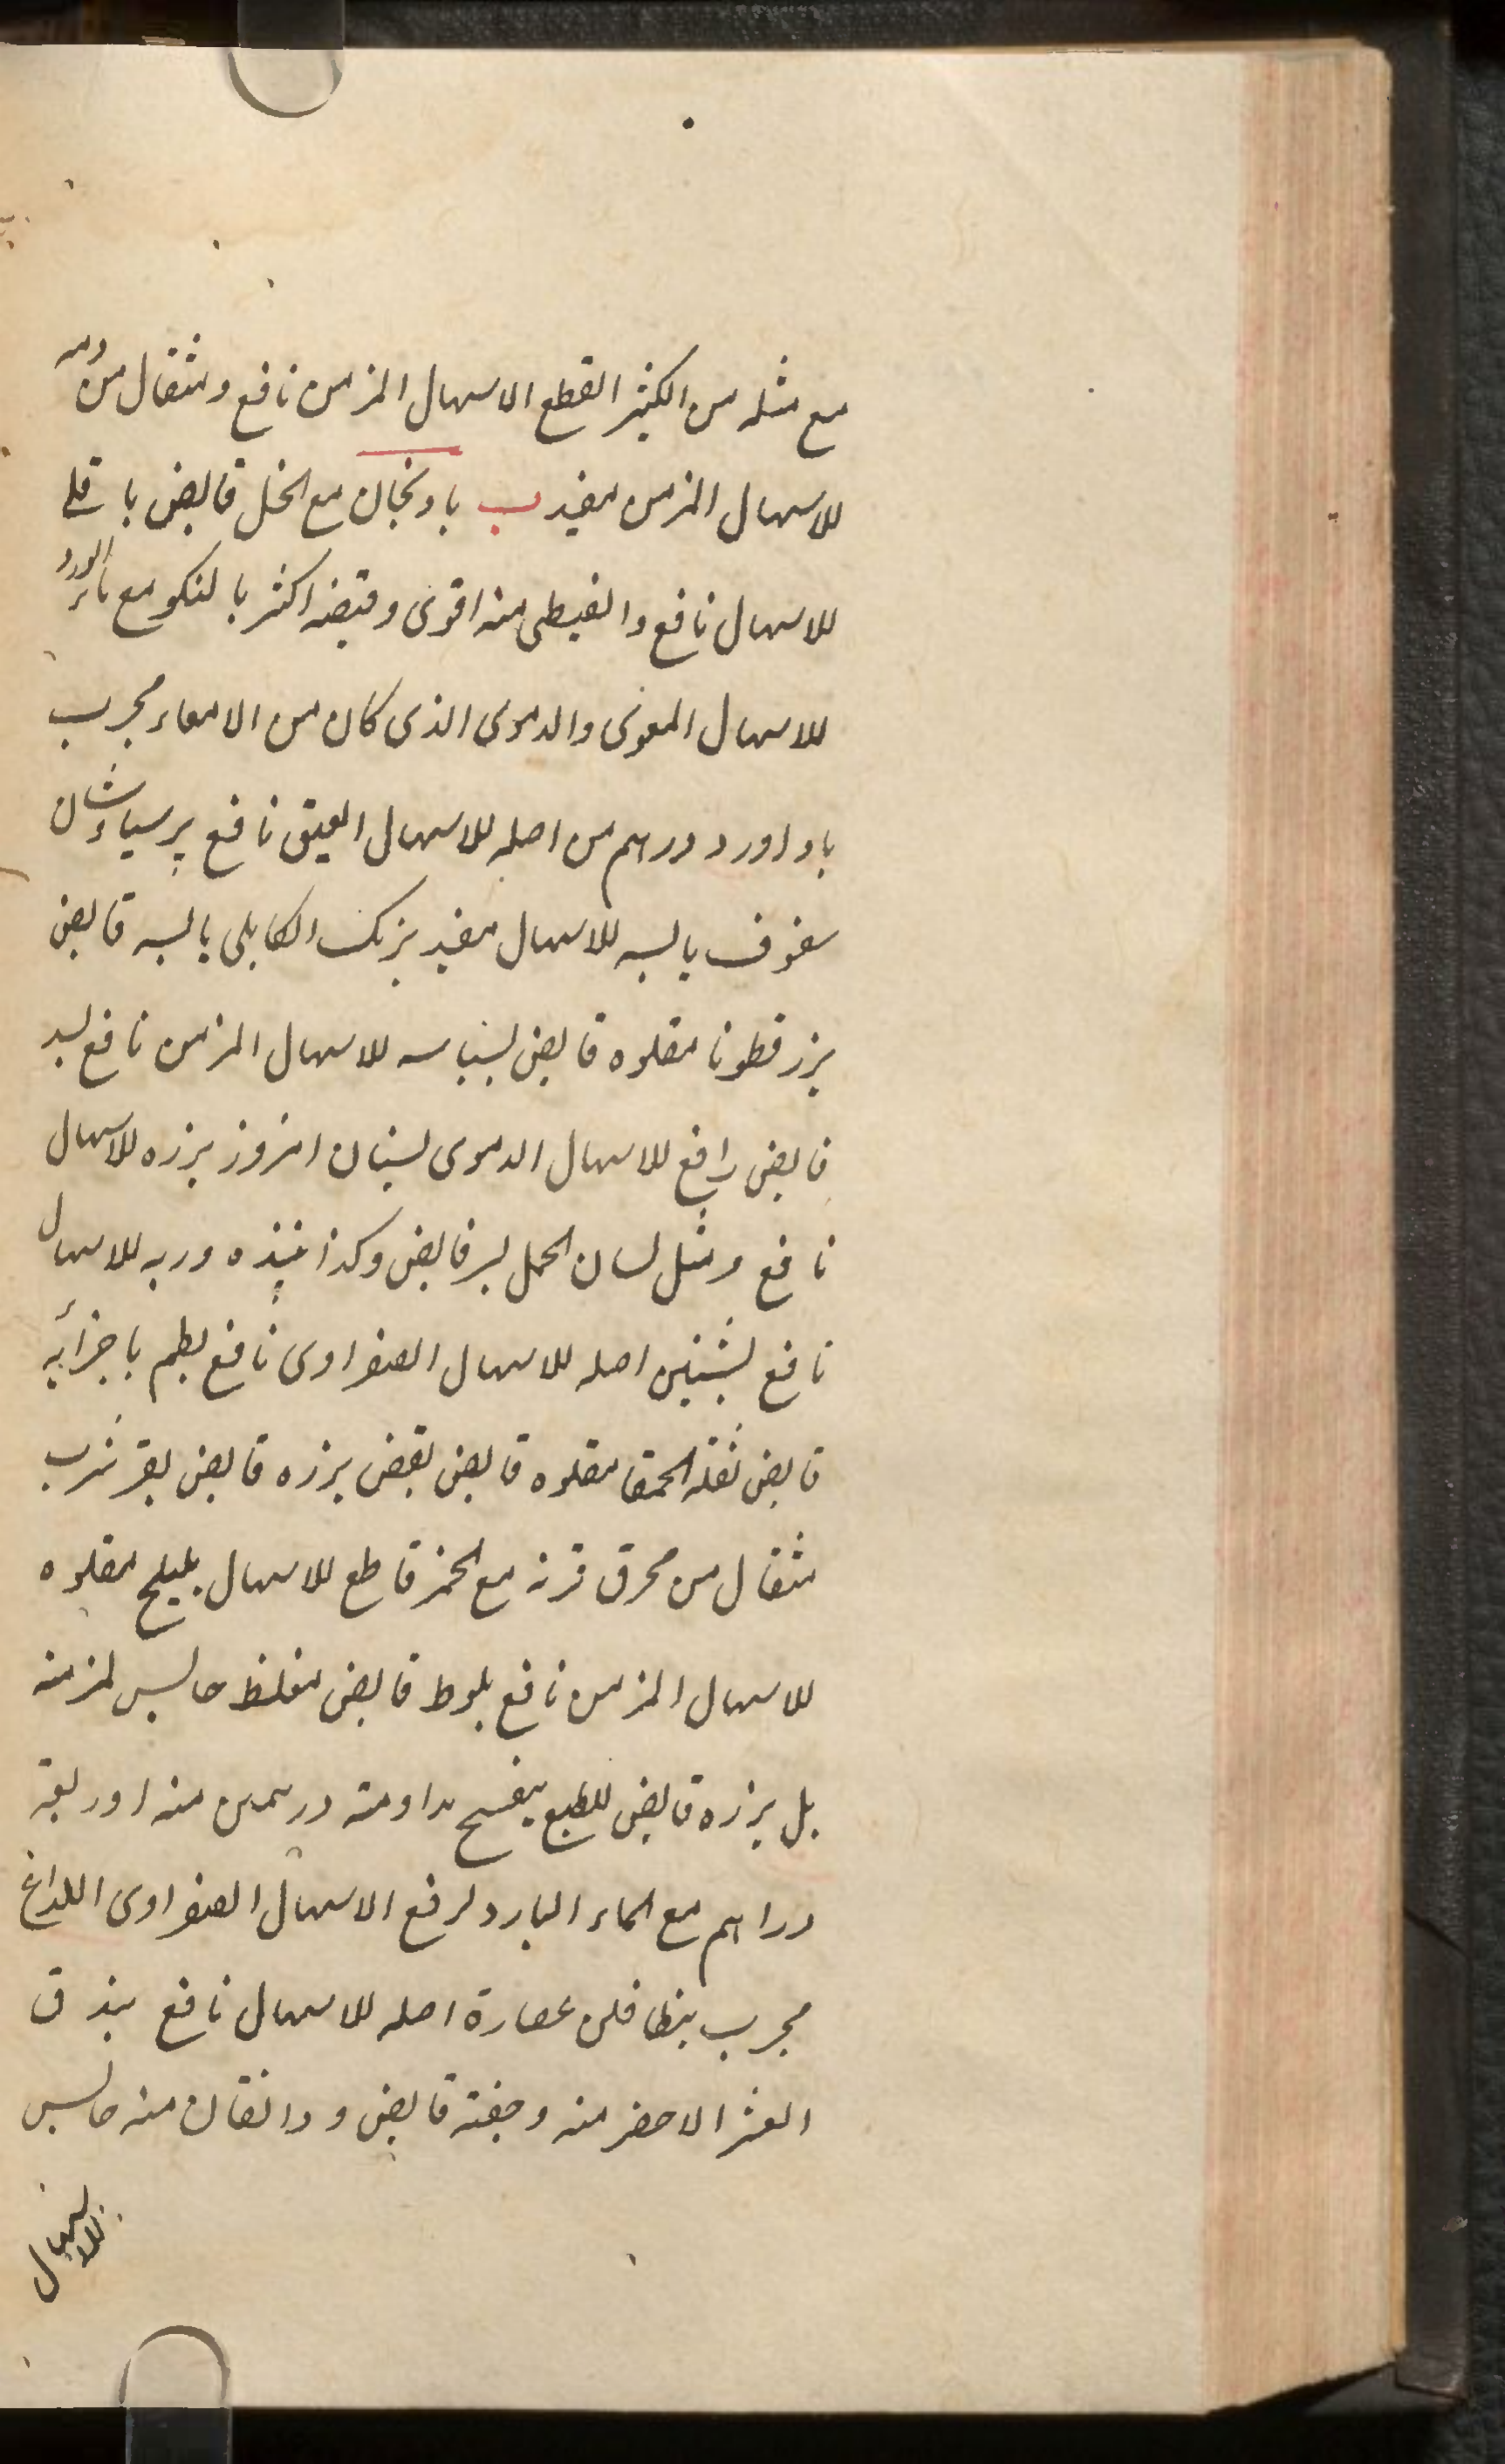 مع مثله من الكثيرا لقطع الاسهال المزمن نافع ومثقال من دمه
للاسهال المزمن مفيد ب بادنجان مع الخل قابض باقلى
للاسهال نافع والقبطى منه اقوى وقبضه اكثر بالنكو مع ماء الورد
للاسهال المعوى والدموى الذى كان من الامعاء مجرب
باداورد درهم من اصله للاسهال العتيق نافع پرسياوشان
سفوف يابسه للاسهال مفيد برنك الكابلى يابسه قابض
بزرقطونا مقلوه قابض بسباسه للاسهال المزمن نافع بسد
قابض رافع للاسهال الدموى بستان افروز بزره للاسهال
نافع ومثل لسان الحمل بسر قابض وكذا نبيذه وربه للاسهال
نافع بشنين اصله للاسهال الصفراوى نافع بطم باجزائه
قابض بقلة الحمقا مقلوه قابض بزره قابض بقر شرب
مثقال من محرق قرنه مع الخمر قاطع للاسهال بليلج مقلوه
للاسهال المزمن نافع بلوط قابض مغلظ حابس لمزمنه
بل بزره قابض للطبع مداومة درهمين منه او ربعة
دراهم مع الماء البارد لرفع الاسهال الصفراوى اللداغ
مجرب بنطافلن عصارة اصله للاسهال نافع بندق
القشر الاخضر منه وجفته قابض ودانقان منه حابس
للاسهال